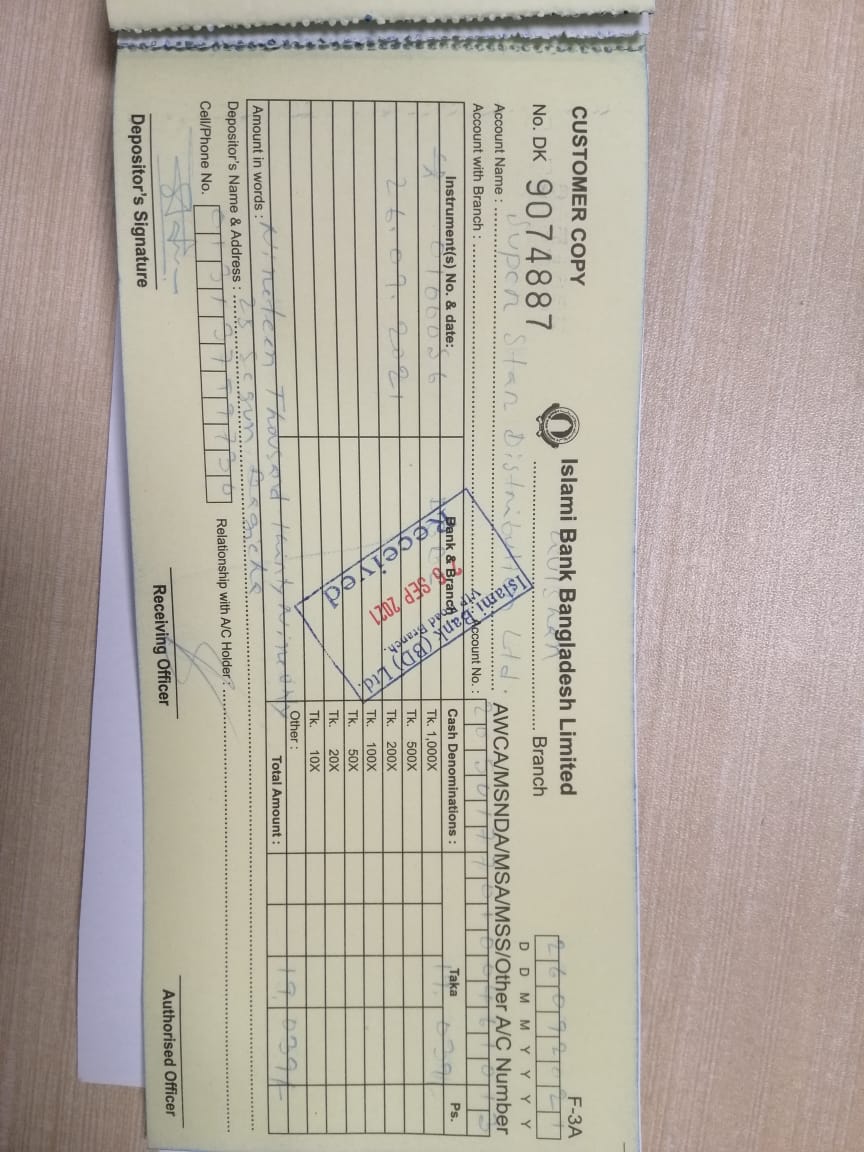 CUSTOMER COPY
F-3A
Islami Bank Bangladesh Limited
No. DK 9074887
Branch
26092021
D D M M Y Y Y Y
Account Name : Super Star Distribution Ltd.
AWCA/MSNDA/MSA/MSS/Other A/C Number
Account with Branch :
Account No. :
Instrument(s) No. & date:
Bank & Branch
Cash Denominations :
Taka
Ps.
Tk. 1,000X
19,039/
Tk. 500X
26.09.2021
Tk. 200X
Tk. 100X
Tk. 50X
Tk. 20X
Tk. 10X
Other :
Total Amount :
19,039/-
Islami Bank (BD) Ltd.
Road Branch.
26 SEP 2021
Received
Amount in words : Nineteen Thousand thirty Nine only
Depositor's Name & Address : 25 Segun Bagicha
Cell/Phone No.
Relationship with A/C Holder :
Depositor's Signature
Receiving Officer
Authorised Officer